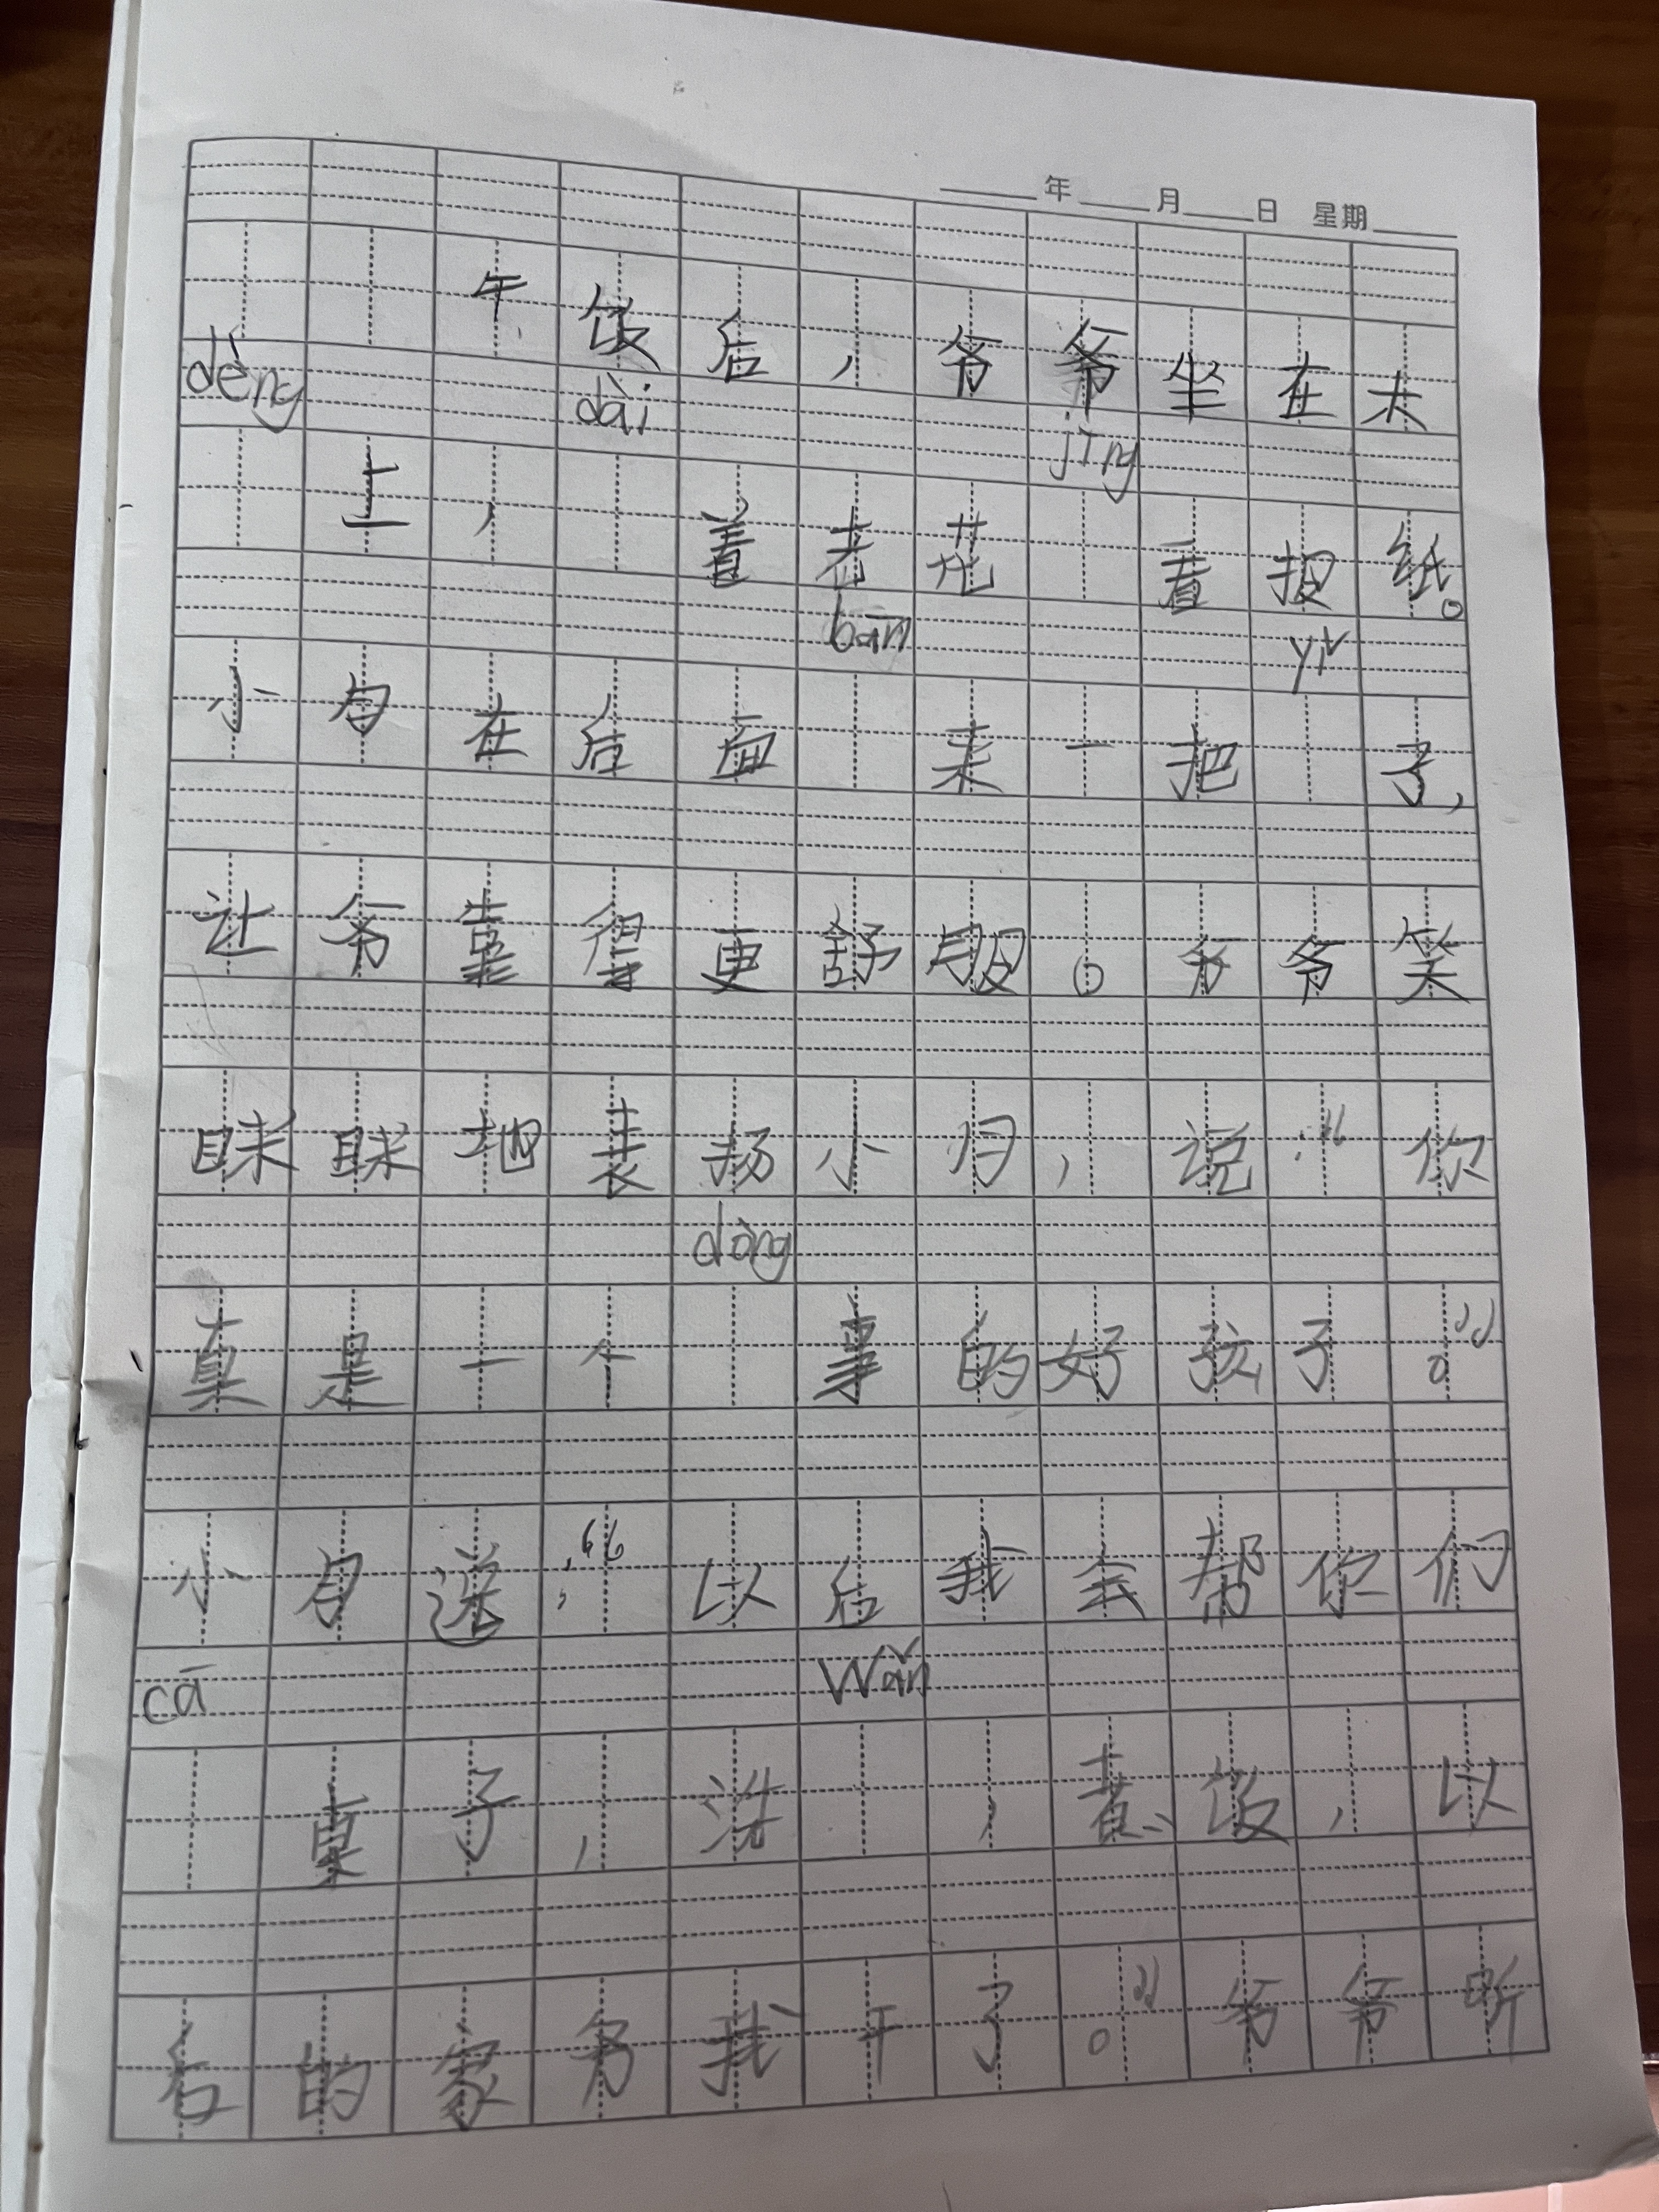 年 月 日 星期
午饭后，爷爷坐在木
dèng上，dài着老花jìng看报纸。
小月在后面bān来一把yǐ子，
让爷靠得更舒服。爷爷笑
眯眯地表扬小月，说：“你
真是一个dǒng事的好孩子。”
小月道：“以后我会帮你们
cā桌子，洗wǎn，煮饭，以
后的家务我干了。”爷爷听